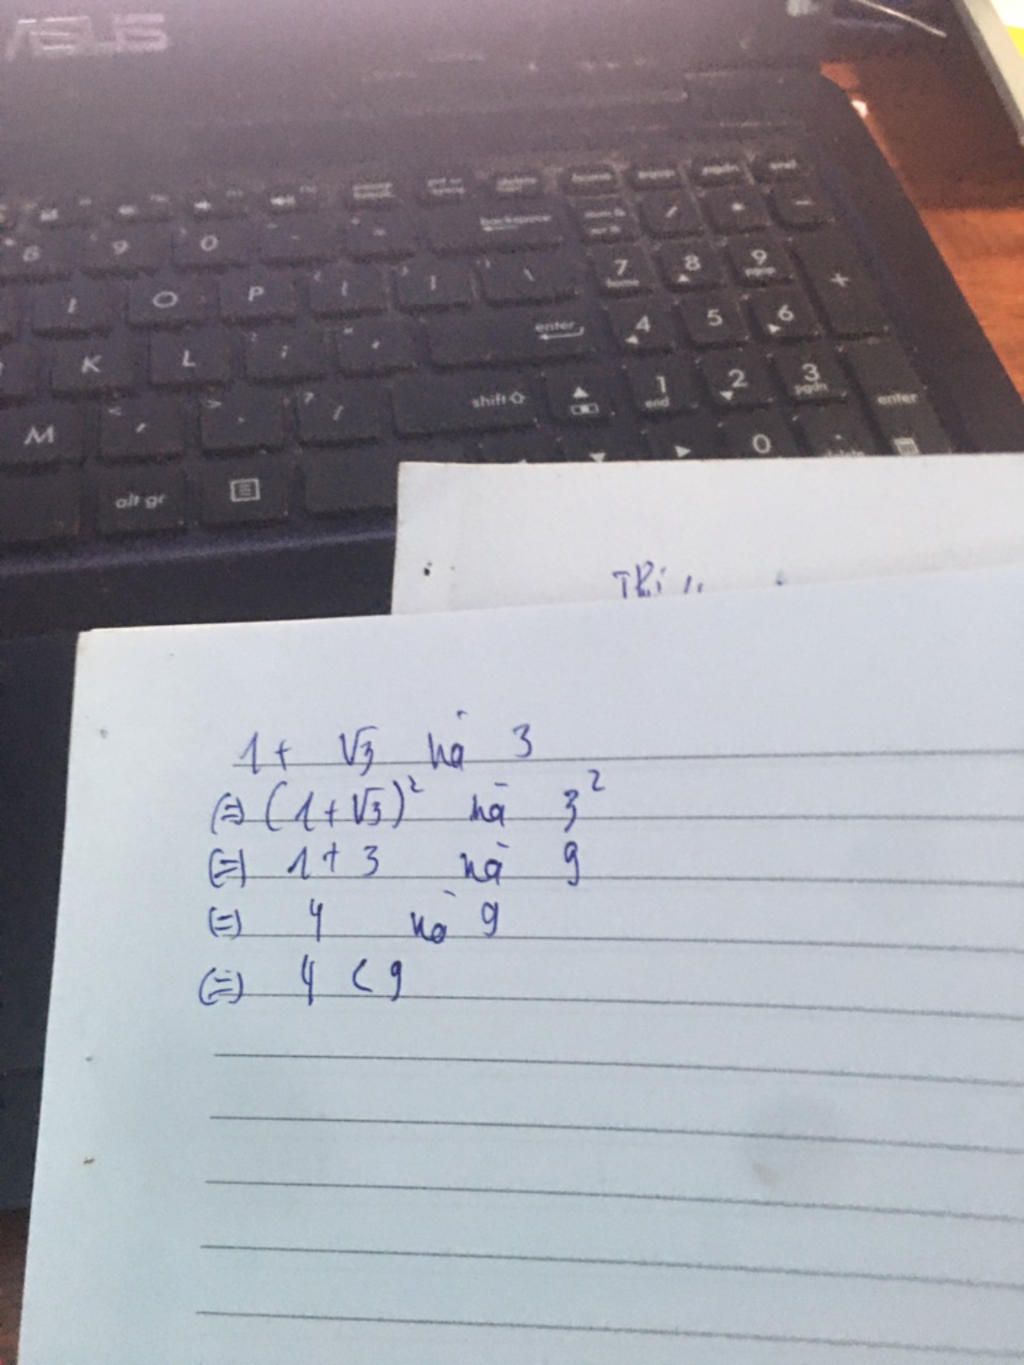 ASUS
backspace
8 9 0 7 8 9 +
home
I O P [ ] \ 4 5 6
enter
K L ; ' 1 2 3
end pgdn
shift enter
M , . / 0
alt gr
Thi
1 + √3 và 3
(=) (1 + √3)² và 3²
(=) 1 + 3 và 9
(=) 4 và 9
(=) 4 < 9